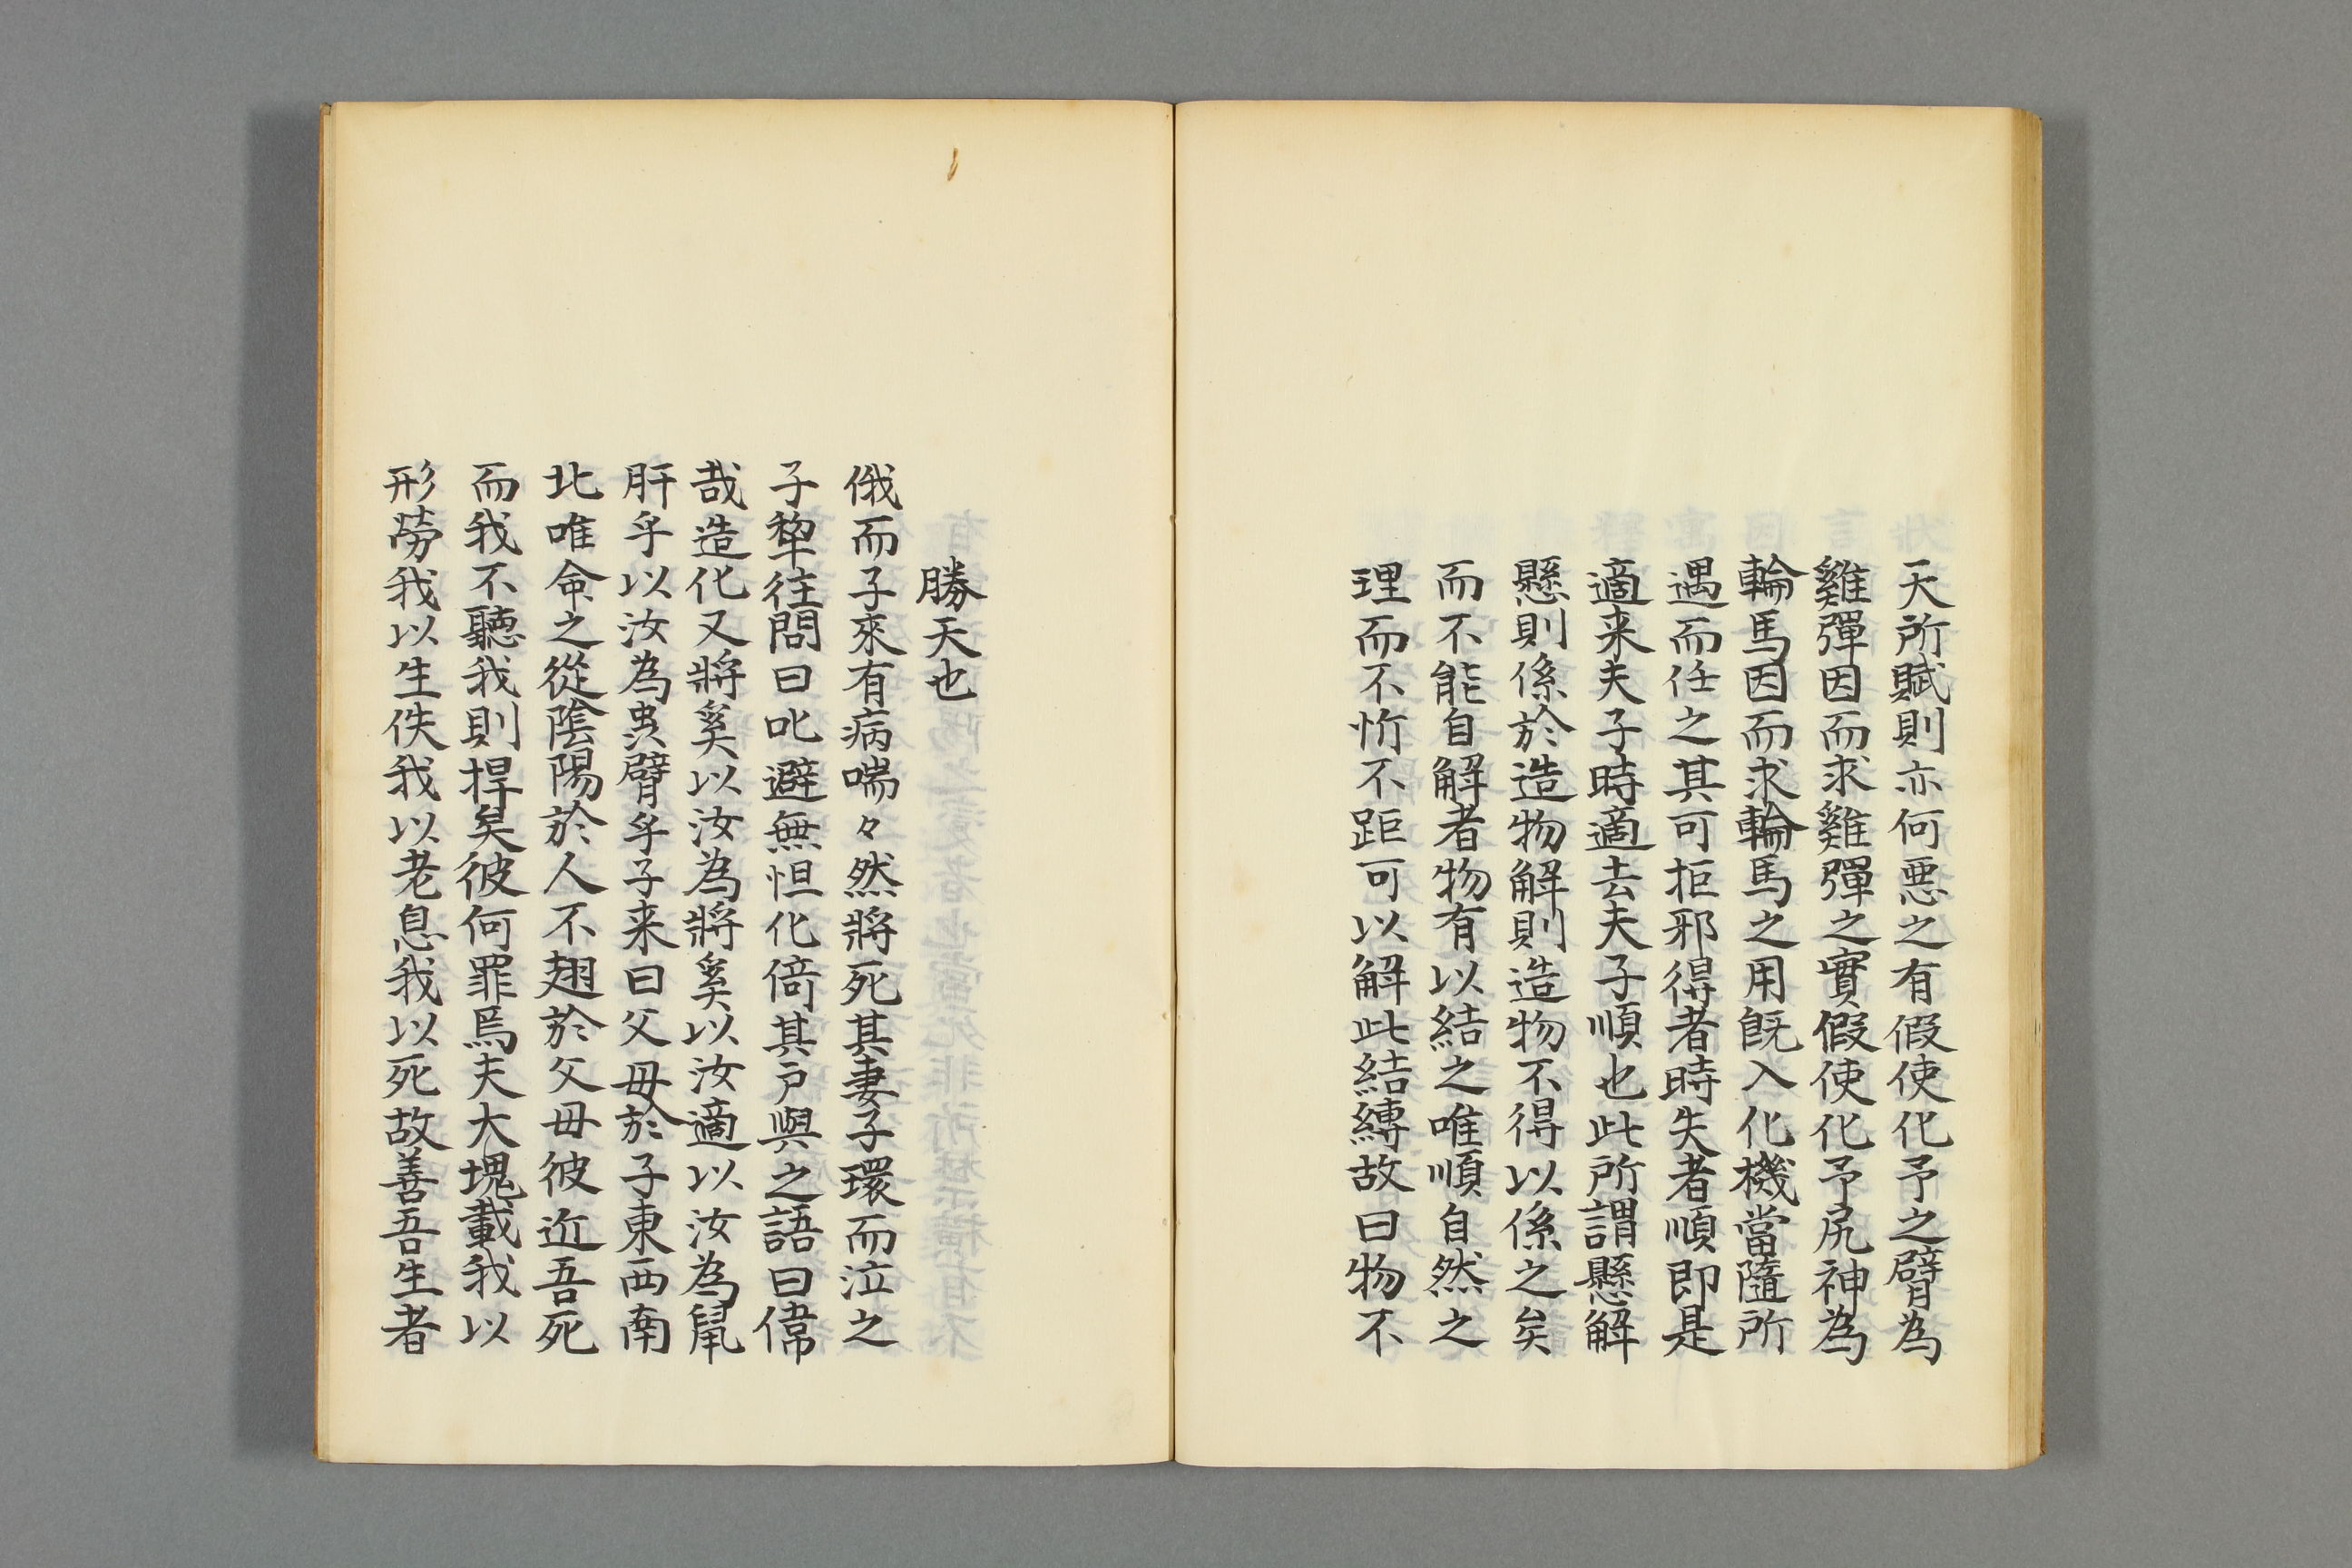 天所賦則亦何悪之有假使化予之臂為
雞彈因而求雞彈之實假使化予尻神為
輪馬因而求輪馬之用既入化機當隨所
遇而任之其可拒邪得者時失者順即是
適来夫子時適去夫子順也此所謂懸解
懸則係於造物解則造物不得以係之矣
而不能自解者物有以結之唯順自然之
理而不忻不距可以解此結縛故曰物不
勝天也
俄而子來有病喘々然將死其妻子環而泣之
子犂往問曰叱避無怛化倚其戸與之語曰偉
哉造化又將奚以汝為將奚以汝適以汝為鼠
肝乎以汝為虫臂乎子来曰父母於子東西南
北唯命之從陰陽於人不翅於父母彼近吾死
而我不聽我則捍矣彼何罪焉夫大塊載我以
形勞我以生佚我以老息我以死故善吾生者